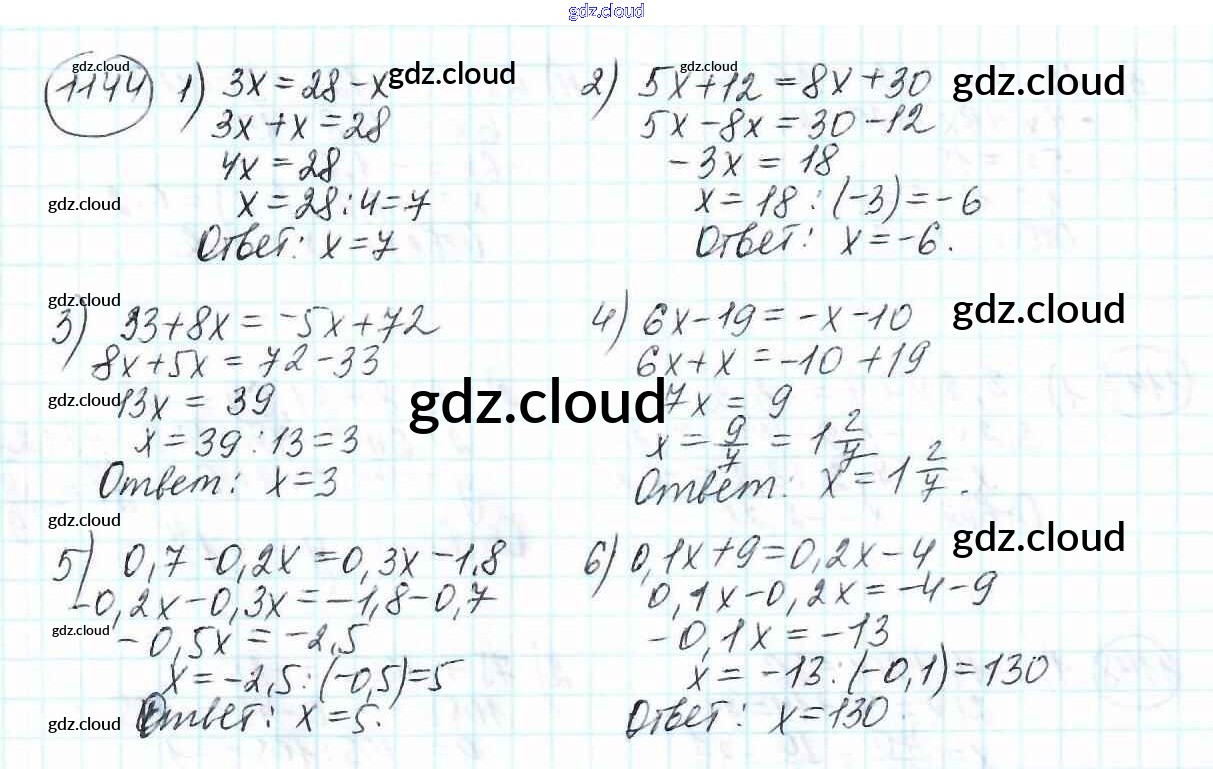 gdz.cloud
1144 1) 3x = 28 - x
3x + x = 28
4x = 28
x = 28 : 4 = 7
Ответ: x = 7
2) 5x + 12 = 8x + 30
5x - 8x = 30 - 12
- 3x = 18
x = 18 : (-3) = - 6
Ответ: x = - 6.
3) 33 + 8x = -5x + 72
8x + 5x = 72 - 33
13x = 39
x = 39 : 13 = 3
Ответ: x = 3
4) 6x - 19 = - x - 10
6x + x = -10 + 19
7x = 9
x = 9/7 = 1 2/7
Ответ: x = 1 2/7.
5) 0,7 - 0,2x = 0,3x - 1,8
-0,2x - 0,3x = -1,8 - 0,7
- 0,5x = -2,5
x = -2,5 : (-0,5) = 5
Ответ: x = 5.
6) 0,1x + 9 = 0,2x - 4
0,1x - 0,2x = -4 - 9
- 0,1x = -13
x = -13 : (-0,1) = 130
Ответ: x = 130.
gdz.cloud
gdz.cloud
gdz.cloud
gdz.cloud
gdz.cloud
gdz.cloud
gdz.cloud
gdz.cloud
gdz.cloud
gdz.cloud
gdz.cloud
gdz.cloud
gdz.cloud